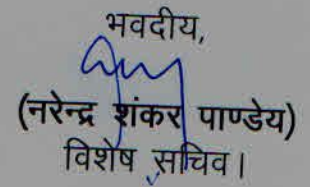 भवदीय,
(नरेन्द्र शंकर पाण्डेय)
विशेष सचिव।